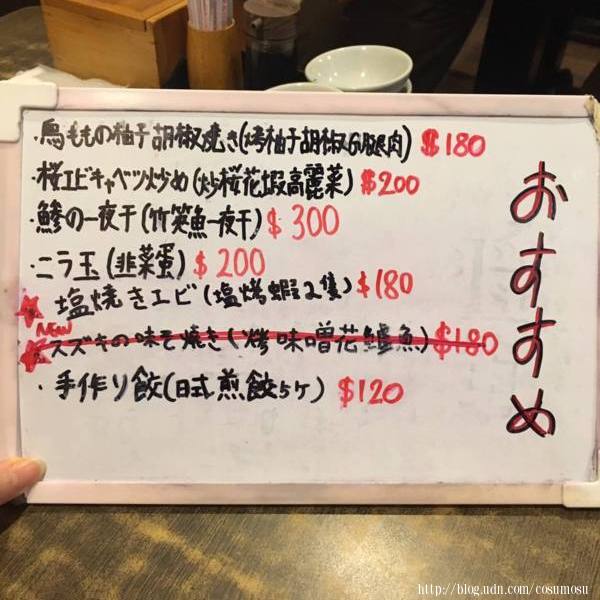 ・鳥ももの柚子胡椒焼き(烤柚子胡椒雞腿肉) $180
・桜エビキャベツ炒め(炒桜花蝦高麗菜) $200
・鯵の一夜干(竹筴魚一夜干) $300
・ニラ玉(韭菜蛋) $200
塩焼きエビ(塩烤蝦2隻) $180
NEW
スズキの味そ焼き(烤味噌花鱸魚) $180
・手作り餃(日式煎餃5ケ) $120
おすすめ
http://blog.udn.com/cosumosu